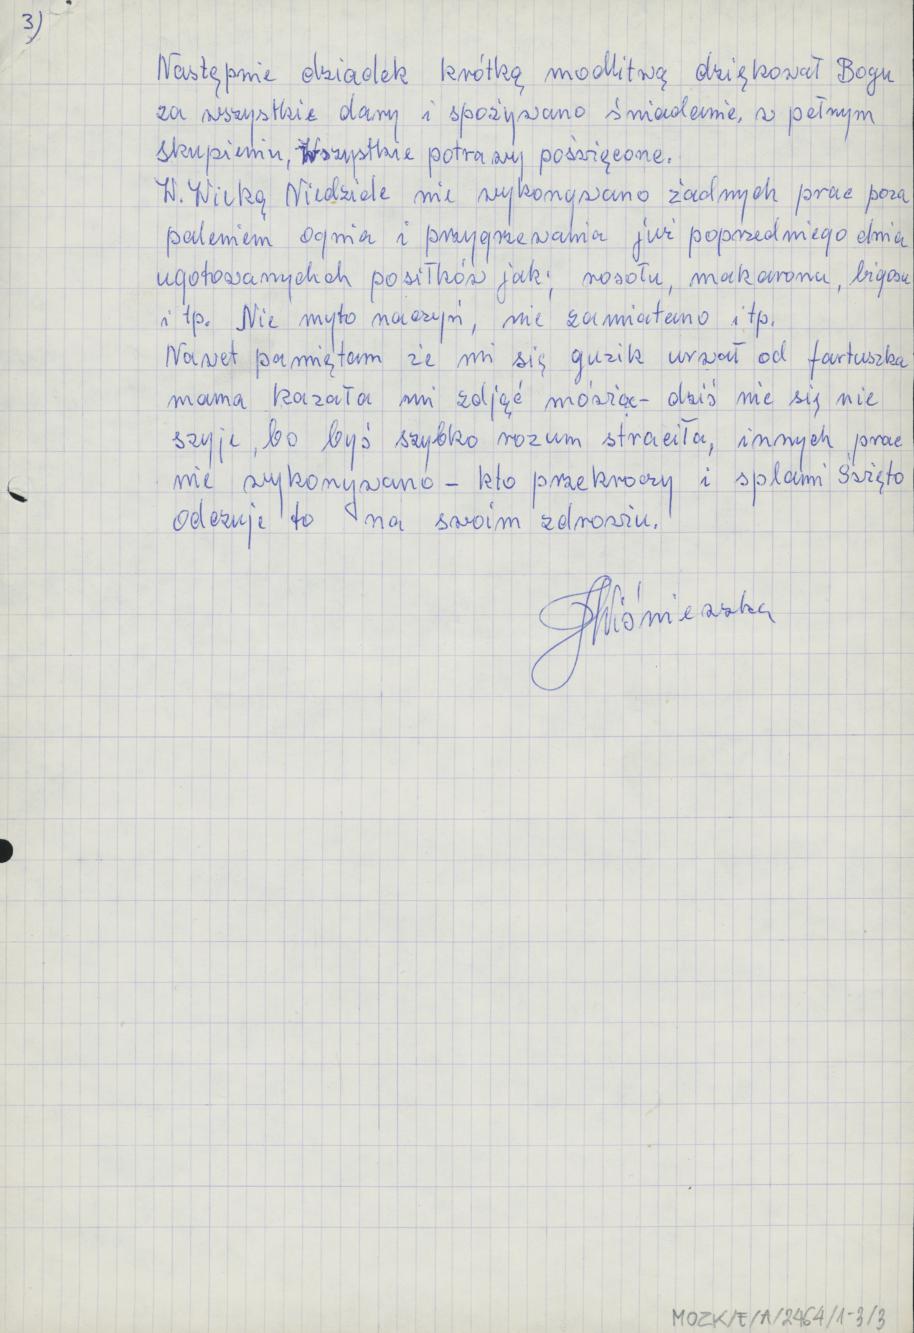 3)
Następnie dziadek krótką modlitwą dziękował Bogu
za wszystkie dary i spożywano śniadanie, w pełnym
skupieniu, Wszystkie potrawy poświęcone.
W. Wielką Niedziele nie wykonywano żadnych prac poza
paleniem ognia i przygrzewania już poprzedniego dnia
ugotowanychch posiłków jak; rosołu, makaronu, bigosu
i tp. Nie myto naczyń, nie zamiatano i tp.
Nawet pamiętam że mi się guzik urwał od fartuszka
mama kazała mi zdjąć mówiąc - dziś nic się nie
szyje, bo byś szybko rozum straciła, innych prac
nie wykonywano - kto przekroczy i splami Święto
odczuje to na swoim zdrowiu.
Wiśniewska
MOZK/E/A/2464/1-3/3